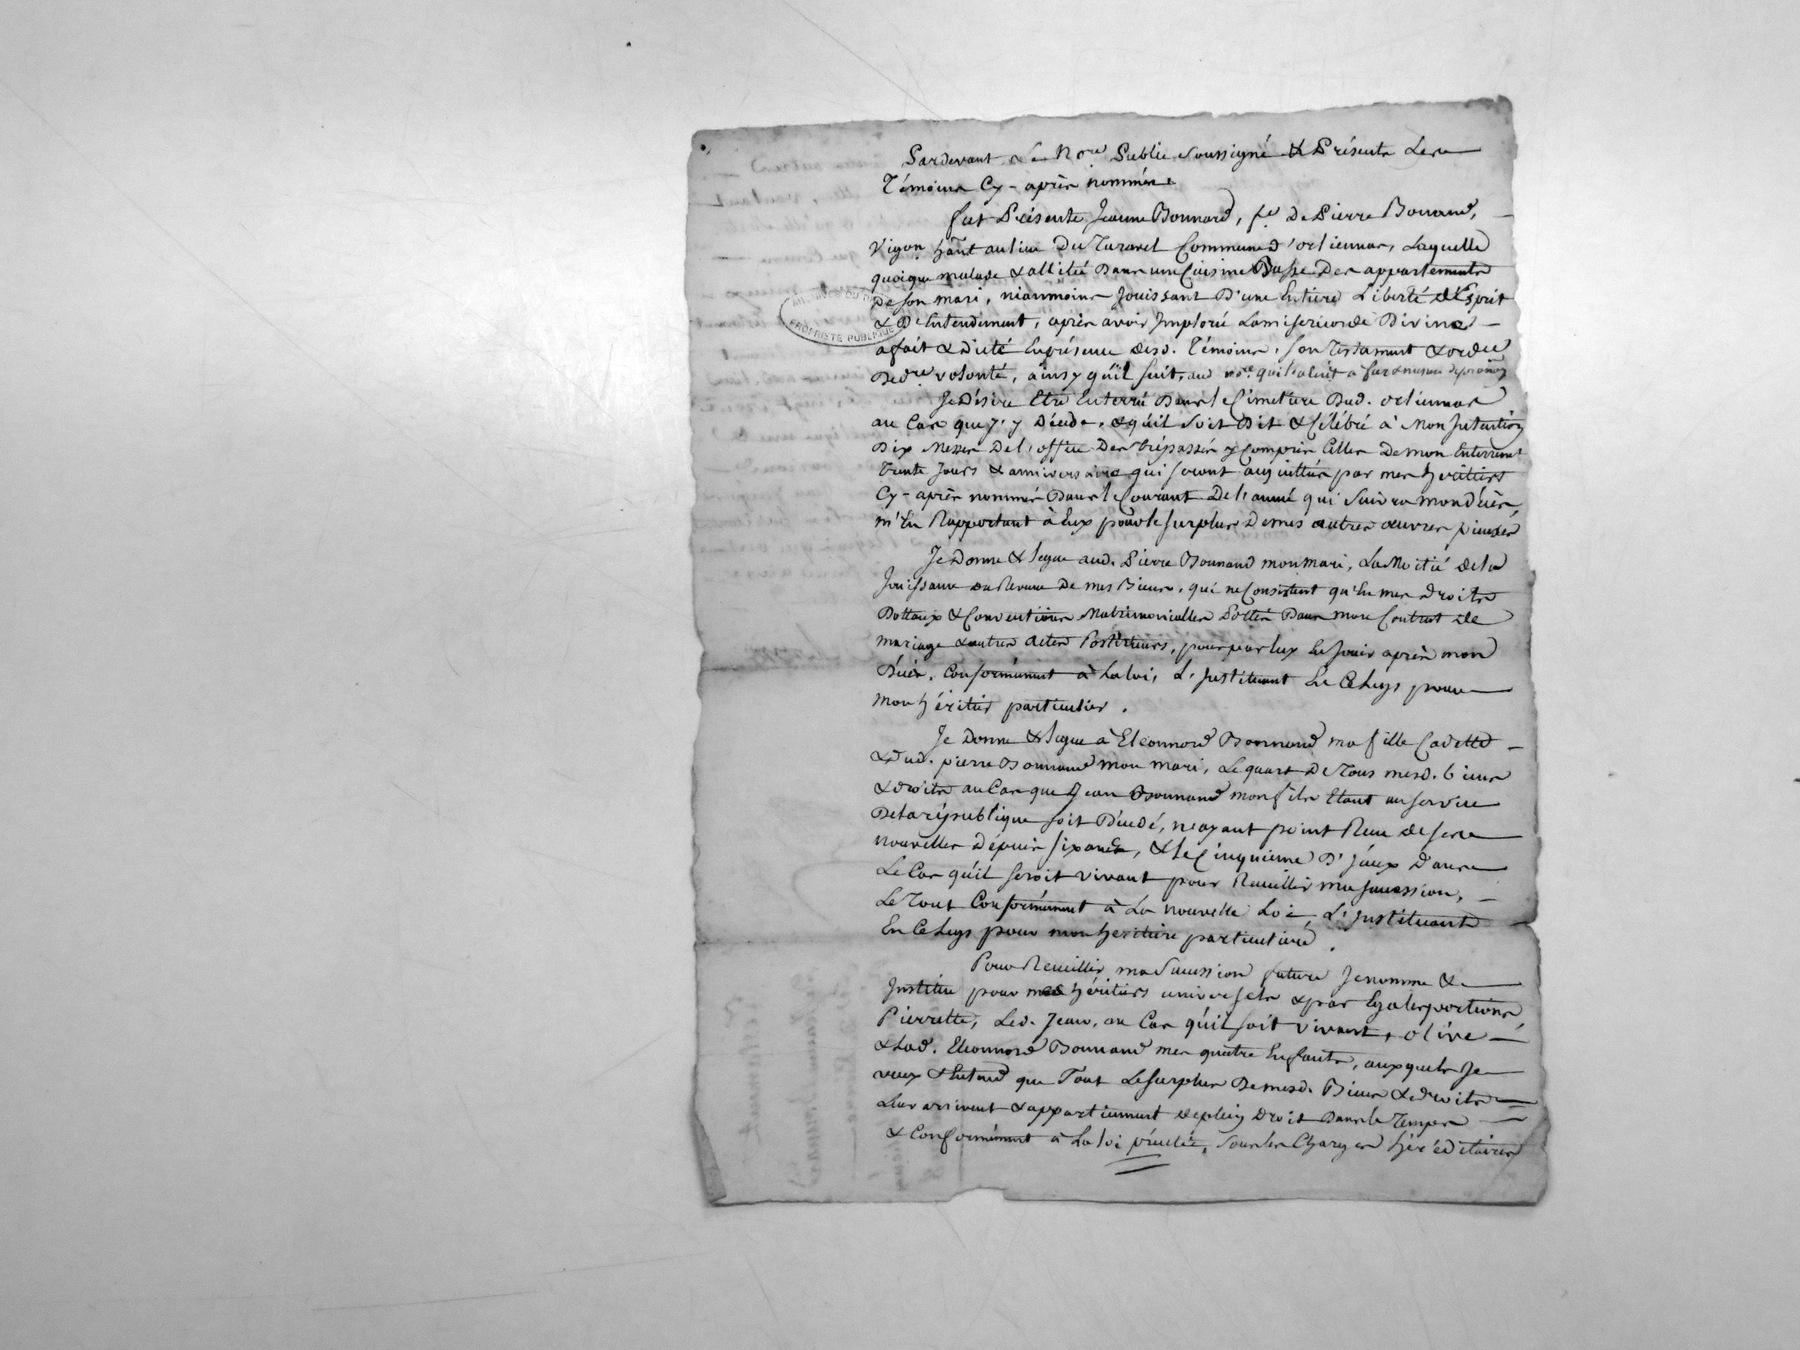 Pardevant Le No.re Public Soussigné & Présents Les
Témoins Cy-après nommés
fut Présente Jeanne Bonnard, fe. De Pierre Bonnand,
Vigon. hãnt au lieu Du Tararel Commune d'orliennas, Laquelle
quoique malade & allitée Dans une Cuisine Basse Des appartements
De son mari, néanmoins Jouissant D'une Entiere Liberté d'Esprit
& D'Entendement, après avoir Imploré La misericorde Divine
a fait & Dicté En présence desd. Témoins, son Testament & ordce
De dre. volonté, ainsy qu'il suit, aud no.re qui l'a écrit à fur & mesure
Je Désire Etre Enterré Dans le Cimetiere Dud. orliennas
au Cas que j'y Décede, & qu'il soit Dit & Célébré à Mon Intention
Dix Messes De l'office Des trépassés y Compris Celles De mon Enterrement
trente Jours & anniversaire qui seront acquittés par mes héritiers
Cy-après nommés Dans le Courant De l'année qui suivra mon Décès,
m'En Rapportant à Eux pour le surplus De mes autres œuvres pieuses
Je Donne & legue aud. Pierre Bonnand mon mari, La Moitié de la
Jouissance du Revenu De mes Biens, qui ne Consistent qu'En mes droits
Dottaux & Conventions Matrimonialles Dans mon Contrat de
mariage & autres actes Postérieurs, pour par lux En Jouir après mon
Décès, Conformément à La loi, L'Instituant En Ce Legs pour
mon héritier particulier.
Je Donne & legue à Eléonnord Bonnand ma fille Cadette
& Dud. pierre Bonnand mon mari, Le quart De Tous mesd. biens
& droits au Cas que Jean Bonnand mon fils Etant au service
De la république soit Décédé, n'ayant point Reçu de ses
nouvelles Dépuis six ans, & le Cinquieme D'Jceux Dans
Le Cas qu'il seroit vivant pour Receuillir ma succession,
Le Tout Conformément à La nouvelle Loi, L'Instituant
En Ce Legs pour mon heritiere particuliere.
Pour Receuillir ma Succession future Je nomme &
Institue pour mes héritiers universels & par Egales portions
Pierrette, Led. Jean, au Cas qu'il soit vivant, olive
& Lad. Eleonnord Bonnand mes quatre Enfants, auxquels Je
veux & Entend que Tout Le surplus De mesd. Biens & droits
Leur arrivent & appartiennent de plein Droit Dans le Temps
& Conformément à La loi précitée, sous les Charges héréditaires
PROPRIETE PUBLIQUE